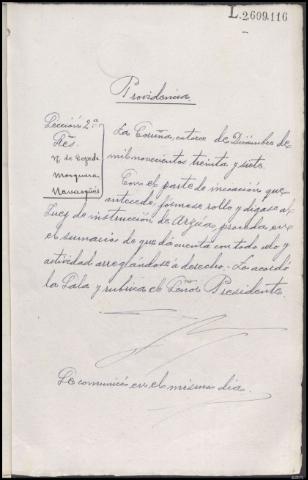 L.2609.116
Providencia
Sección 2ª
Sres.
Mosquera
Navasqüés
La Coruña, catorce de Diciembre de
mil novecientos treinta y siete.
Con el parte de incoación que
antecede, fórmese rollo y dígase al
Juez de instrucción de Arzúa, proceda en
el sumario de que dá cuenta con todo celo y
actividad arreglándose á derecho.- Lo acordó
la Sala y rubrica el Señor Presidente.
Se comunicó en el mismo dia.